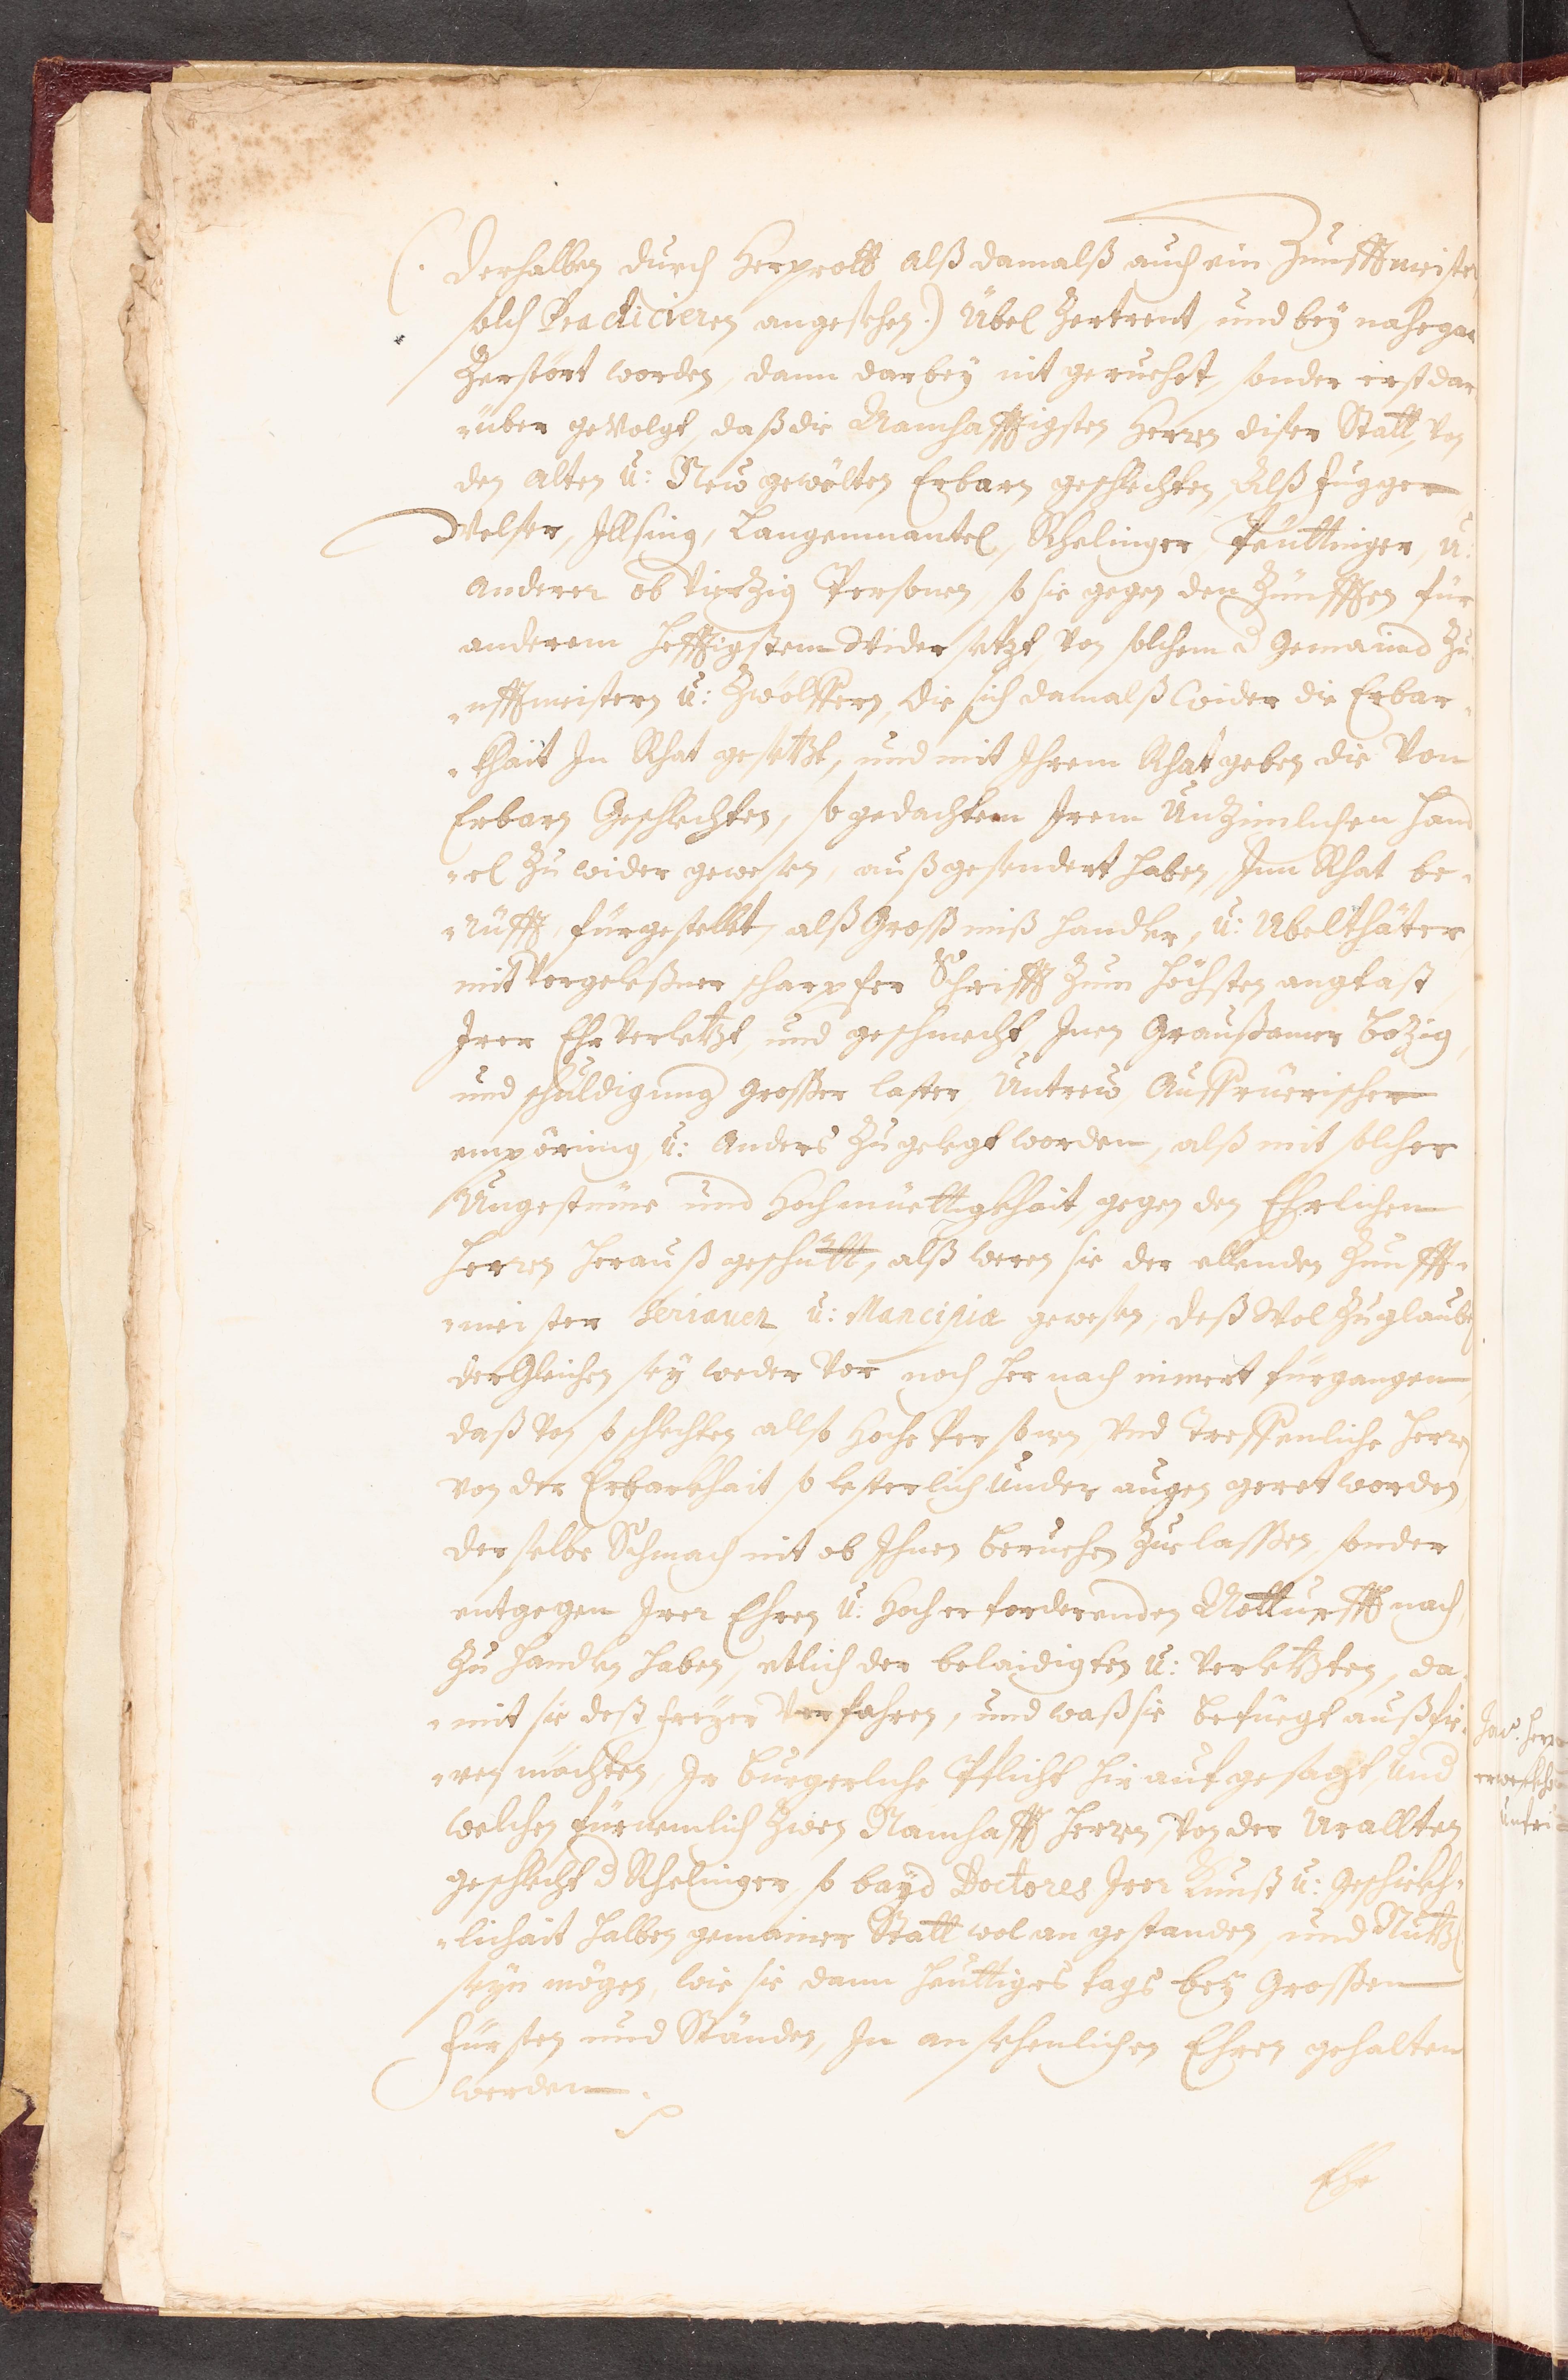 (. derhalben durch Herprott alß damalß auch ein Zunfftmeister
solch Practicieren angesehen.) Übel Zertrent, und bey nahe gar
Zerstört worden, dann darbey nit geruehet, sonder erst dar
-über gevolgt, daß die Namhafftigsten Herren diser Statt, von
den alten ü: New gewölten Erbarn geschlechten, Alß Fugger
Welser, Illsing, Langenmantel, Rhelinger, Peuttinger, ü:
anderer ob vierzig Personen, so sie gegen den Zünfften für
anderem hefftigsten Widersetzt, von solchem d Gemaind Zu
-nfftmeistern ü: Zwölffern, die sich damalß wider die Erbar-
-khait In Rhat gesetzt, und mit Ihrem Rhat geben die Von
Erbarn Geschlechten, so gedachtem Irem Unzimlichen hand
-el Zu wider gewesen, außgesendert haben, Inn Rhat be-
-rüfft, fürgestellt, alß Groß miß handler, ü: Ubelthäter
mit Vorgeleßner scharpfer Schrifft Zum höchsten angetast
Irer Ehr Verletzt, und geschmecht, Inen Graußamer bozig
und schuldigung Grosser laster, Untrew, Auffrüerischer
empörung, ü: Anders Zugelegt worden, alß mit solcher
Ungestüme und Hochmüettigkhait, gegen den Ehrlichen
Herren herauß geschütt, alß weren sie der ellenden Zunfft-
-meister ü: Mancipia gewesen, deß Wol Zuglauben
dergleichen sey weder Vor noch hernach niemert fürgangen
daß von so schlechten allso Hoche Personen, Und Treffenliche Herren
von der Erbarkhait so lesterlich Under augen geret worden,
derselbe Schmach nit ob Ihnen Beruehen Zuelassen, sonder
entgegen Irer Ehren ü: Hocherforderenden Notturfft nach,
Zu handlen haben, etlich der belaidigten ü: Verletzten, da-
-mit sie dest freyer Verfahren, und waß sie Befuegt außfie-
-ren möchten, Ir Burgerliche Pflicht hie aufgesagt, Und
welchen fürnemlich Zwen Namhafft Herren, Von der Urallten
geschlecht d Rhelinger, so bayd Doctores Irer Kunst ü: Geschickh-
-lichait halben gemainer Statt wol an gestanden, und Nutzl
seyn mögen, wie sie dann heuttiges tags bey Grossen
Fürsten und Ständen, In ansehenlichen Ehren gehalten
werden.
Ehe